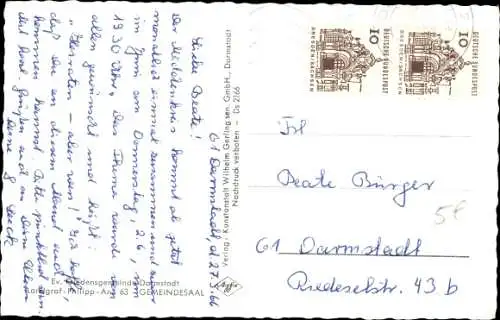 61 Darmstadt, d. 27.5.66
Liebe Beate!
Der Mädchenkreis kommt ab jetzt
monatlich einmal zusammen und zwar
im Juni am Donnerstag, 2.6., um
19.30 Uhr. Das Thema wurde von
allen gewünscht und heißt:
"Heiraten - aber wen?" Ich hoffe,
daß Du an diesem Abend auch
kommen kannst. Bitte pünktlich sein.
Mit herzl. Grüßen auch an Deine Eltern
Deine
Ev. Friedensgemeinde Darmstadt
Landgraf-Philipp-Anl. 63 GEMEINDESAAL
Verlag: Kunstanstalt Wilhelm Gerling sen. GmbH., Darmstadt
Nachdruck verboten - Ds 2166
Agfa
DEUTSCHE BUNDESPOST
10
DRESDEN-SACHSEN
DEUTSCHE BUNDESPOST
10
DRESDEN-SACHSEN
Frl
Beate Bürger
61 Darmstadt
Riedeselstr. 43 b